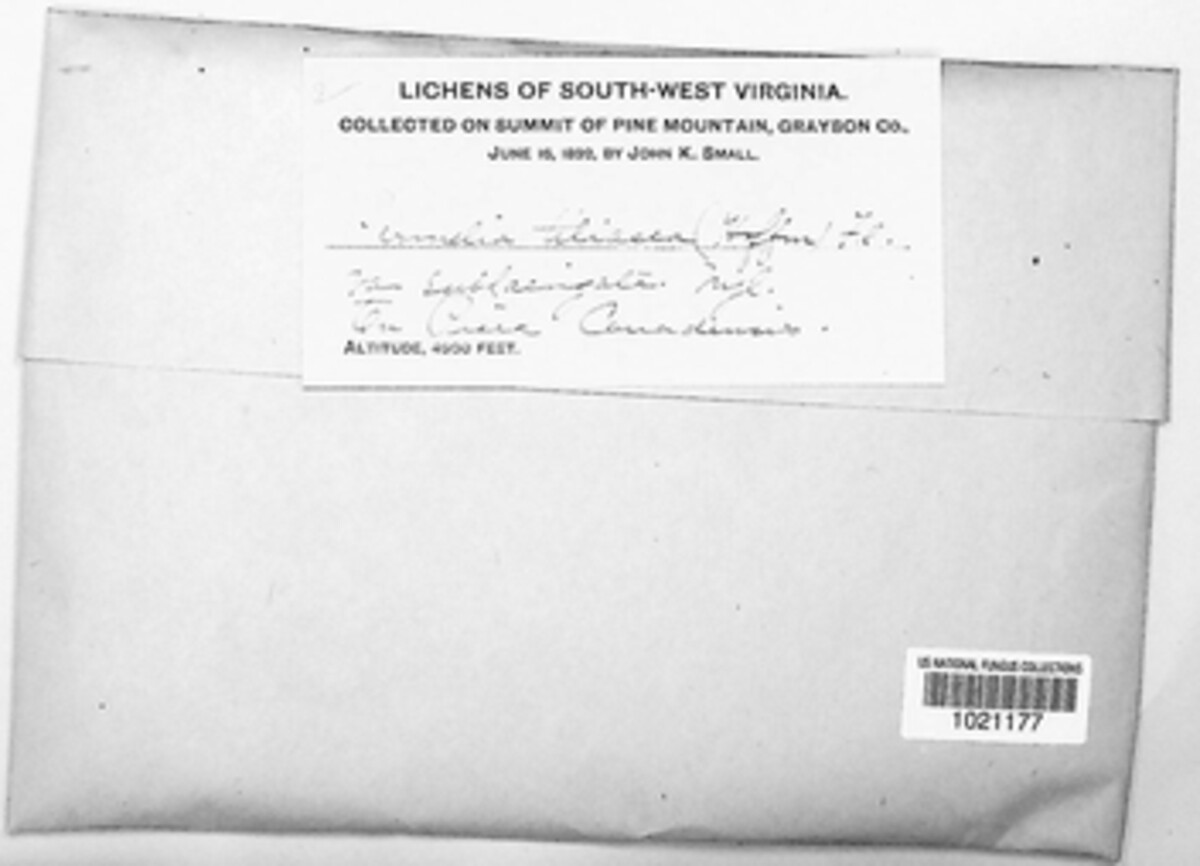 LICHENS OF SOUTH-WEST VIRGINIA.
COLLECTED ON SUMMIT OF PINE MOUNTAIN, GRAYSON CO.,
JUNE 15, 1892, BY JOHN K. SMALL.
Parmelia tiliacea (Hoffm) Fl.
sublaevigata Nyl.
On Canadensis.
ALTITUDE, 4900 FEET.
US NATIONAL FUNGUS COLLECTIONS
1021177